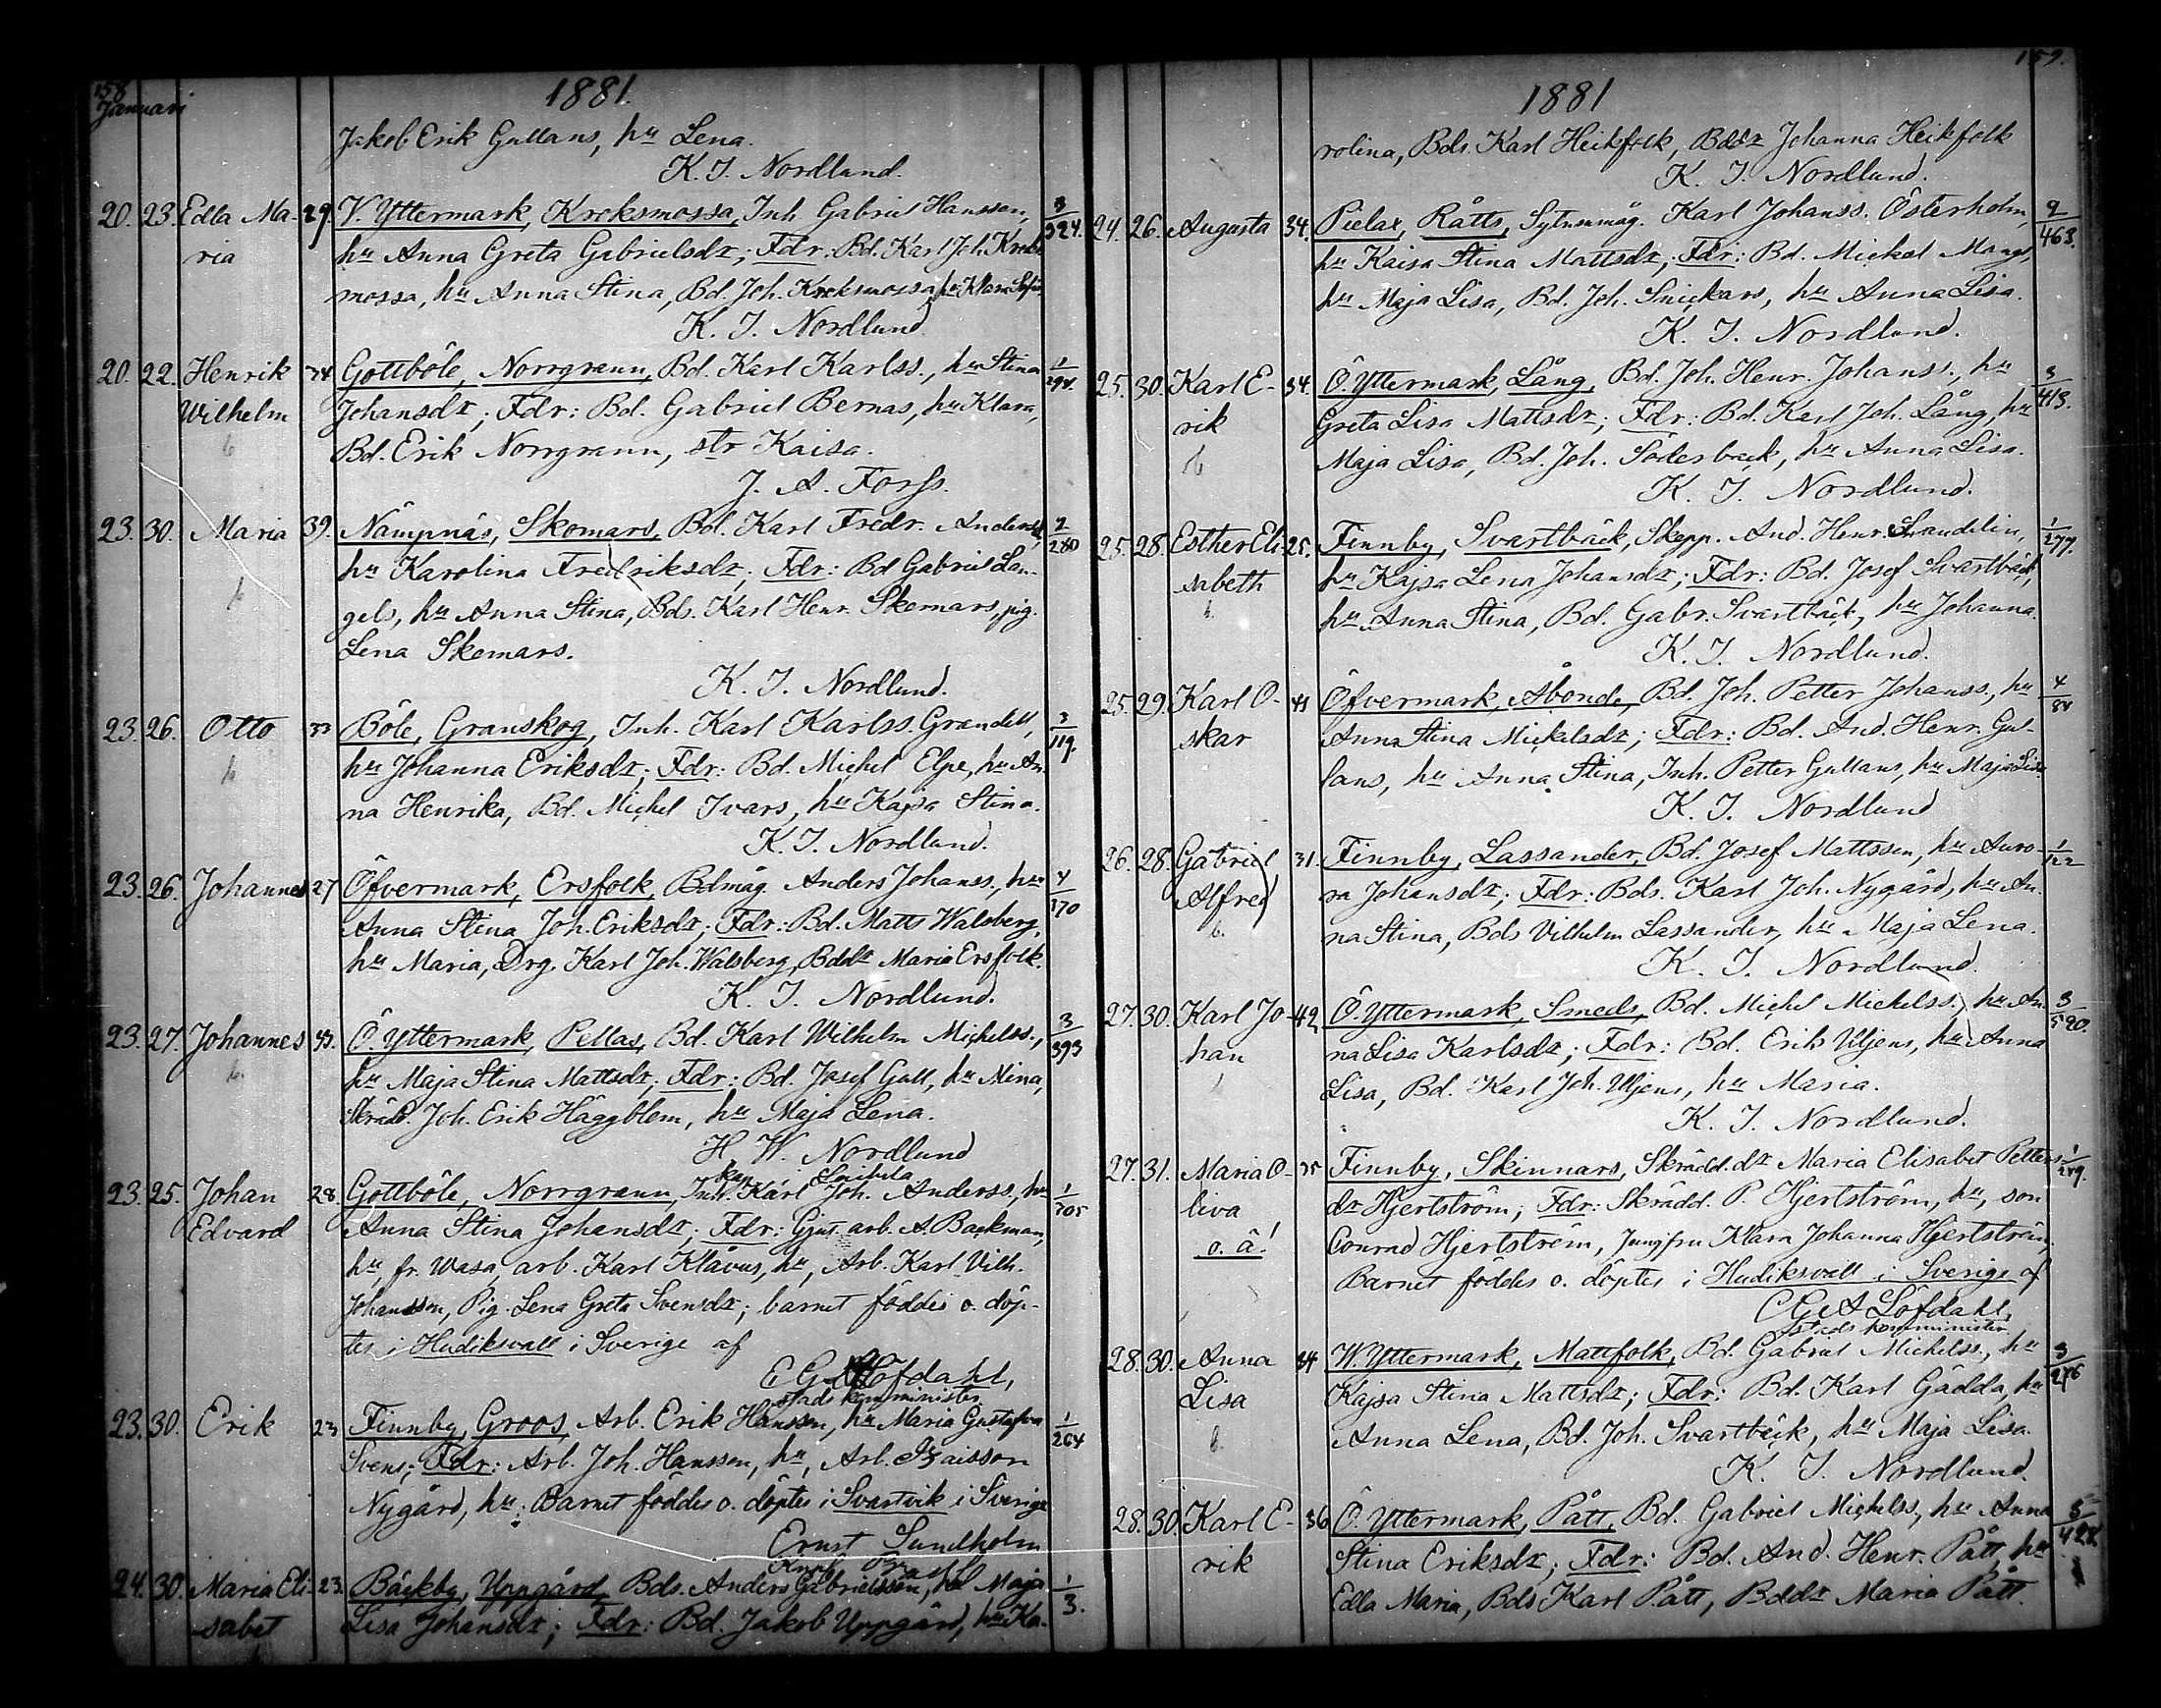 158
Januari
1881.
Jakob Erik Gullans, hu Lena.
K. I. Nordlund.
20. 23. Edla Ma- 29. V. Yttermark, Kreksmossa, Inh. Gabriel Hansson, 3/324.
ria hu Anna Greta Gabrielsdr; Fdr: Bd. Karl Joh. Kreks-
mossa, hu Anna Stina, Bd. Joh. Kreksmossa, hu Klara Sofia
K. I. Nordlund
20. 22. Henrik 34 Gottböle, Norrgrann, Bd. Karl Karlss., hu Stina 1/294.
Wilhelm Johansdr; Fdr: Bd. Gabriel Bernas, hu Klara,
Bd. Erik Norrgrann, str Kaisa.
J. A. Forss.
23. 30. Maria 39. Nämpnäs, Skomars, Bd. Karl Fredr. Anderss, 2/280
hu Karolina Fredriksdr; Fdr: Bd Gabriel Lan-
gels, hu Anna Stina, Bds. Karl Henr. Skomars, pig.
Lena Skomars.
K. I. Nordlund.
23. 26. Otto 33 Böle, Granskog, Inh. Karl Karlss. Grandell, 3/119.
hu Johanna Eriksdr; Fdr: Bd. Michel Elpe, hu An-
na Henrika, Bd. Michel Ivars, hu Kajsa Stina.
K. I. Nordlund.
23. 26. Johannes 27 Öfvermark, Ersfolk, Bdmåg. Anders Johanss., hu 4/170
Anna Stina Joh. Eriksdr; Fdr: Bd. Matts Walsberg,
hu Maria, Drg. Karl Joh. Walsberg, Bddr Maria Ersfolk.
K. I. Nordlund.
23. 27. Johannes 43. Ö. Yttermark, Pellas, Bd. Karl Wilhelm Michelss., 3/393
hu Maja Stina Mattsdr; Fdr: Bd. Josef Gull, hu Mina,
Skrädd. Joh. Erik Häggblom, hu Maja Lena.
H. W. Nordlund
23. 25. Johan 28. Gottböle, Norrgrann, Inh. Karl Joh. Anderss., hu 1/305
Edvard Anna Stina Johansdr; Fdr: Gjut. arb. A. Backman,
hu, fr. Wasa, arb. Karl Klåvus, hu, Arb. Karl Vilh.
Johansson, Pig. Lena Greta Svensdr; barnet föddes o. döp-
tes i Hudiksvall i Sverige af
C G A Löfdahl,
stads komminister
23. 30. Erik 23 Finnby, Groos, Arb. Erik Hansson, hu Maria Gustafva 1/264
Svens; Fdr: Arb. Joh. Hansson, hu, Arb. Isaisson
Nygård, hu; Barnet föddes o. döptes i Svartvik i Sverige
Ernst Lundholm
24. 30. Maria Eli- 23. Bäckby, Uppgård, Bds. Anders Gabrielsson, hu Maja 1/3.
sabet Lisa Johansdr; Fdr: Bd. Jakob Uppgård, hu Ka-
159.
1881
rolina, Bds. Karl Heikfolk, Bddr Johanna Heikfolk
K. I. Nordlund.
24. 26. Augusta 34. Pielax, Råtts, Sytnmåg. Karl Johanss. Österholm, 2/463.
hu Kaisa Stina Mattsdr; Fdr: Bd. Mickel Mangs,
hu Maja Lisa, Bd. Joh. Snickars, hu Anna Lisa.
K. I. Nordlund.
25. 30. Karl E- 34. Ö. Yttermark, Lång, Bd. Joh. Henr. Johanss., hu 3/413.
rik Greta Lisa Mattsdr; Fdr: Bd. Karl Joh. Lång, hu
Maja Lisa, Bd. Joh. Söderback, hu Anna Lisa.
K. I. Nordlund.
25. 28. Esther Eli- 25. Finnby, Svartbäck, Skepp. And. Henr. Sandelin, 1/277.
sabeth hu Kajsa Lena Johansdr; Fdr: Bd. Josef Svartbäck,
hu Anna Stina, Bd. Gabr. Svartbäck, hu Johanna.
K. I. Nordlund.
25. 29. Karl O- 41 Öfvermark, Åbonde, Bd. Joh. Petter Johanss., hu 4/84
skar Anna Stina Mickelsdr; Fdr: Bd. And. Henr. Gul-
lans, hu Anna Stina, Inh. Petter Gullans, hu Maja Lisa
K. I. Nordlund
26. 28. Gabriel 31. Finnby, Lassander, Bd. Josef Mattsson, hu Auro- 1/122
Alfred ra Johansdr; Fdr: Bds. Karl Joh. Nygård, hu An-
na Stina, Bds Vilhelm Lassander, hu Maja Lena.
K. I. Nordlund.
27. 30. Karl Jo- 42 Ö. Yttermark, Smeds, Bd. Michel Michelss., hu An- 3/590.
han na Lisa Karlsdr; Fdr: Bd. Erik Utjens, hu Anna
Lisa, Bd. Karl Joh. Utjens, hu Maria.
K. I. Nordlund.
27. 31. Maria O- 35 Finnby, Skinnars, Skrädd. dr Maria Elisabet Petters- 1/249.
liva dr Hjertström; Fdr: Skrädd. P. Hjertström, hu, son
o. ä! Conrad Hjertström, Jungfru Klara Johanna Hjertström,
Barnet föddes o. döptes i Hudiksvall i Sverige af
C G A Löfdahl,
stads komminister
28. 30. Anna 34 W. Yttermark, Mattfolk, Bd. Gabriel Michelss., hu 3/276
Lisa Kajsa Stina Mattsdr; Fdr: Bd. Karl Gädda, hu
Anna Lena, Bd. Joh. Svartbäck, hu Maja Lisa.
K. I. Nordlund.
28. 30. Karl E- 36 Ö. Yttermark, Pått, Bd. Gabriel Michelss, hu Anna 3/428.
rik Stina Eriksdr; Fdr: Bd. And. Henr. Pått, hu
Edla Maria, Bds Karl Pått, Bddr Maria Pått.